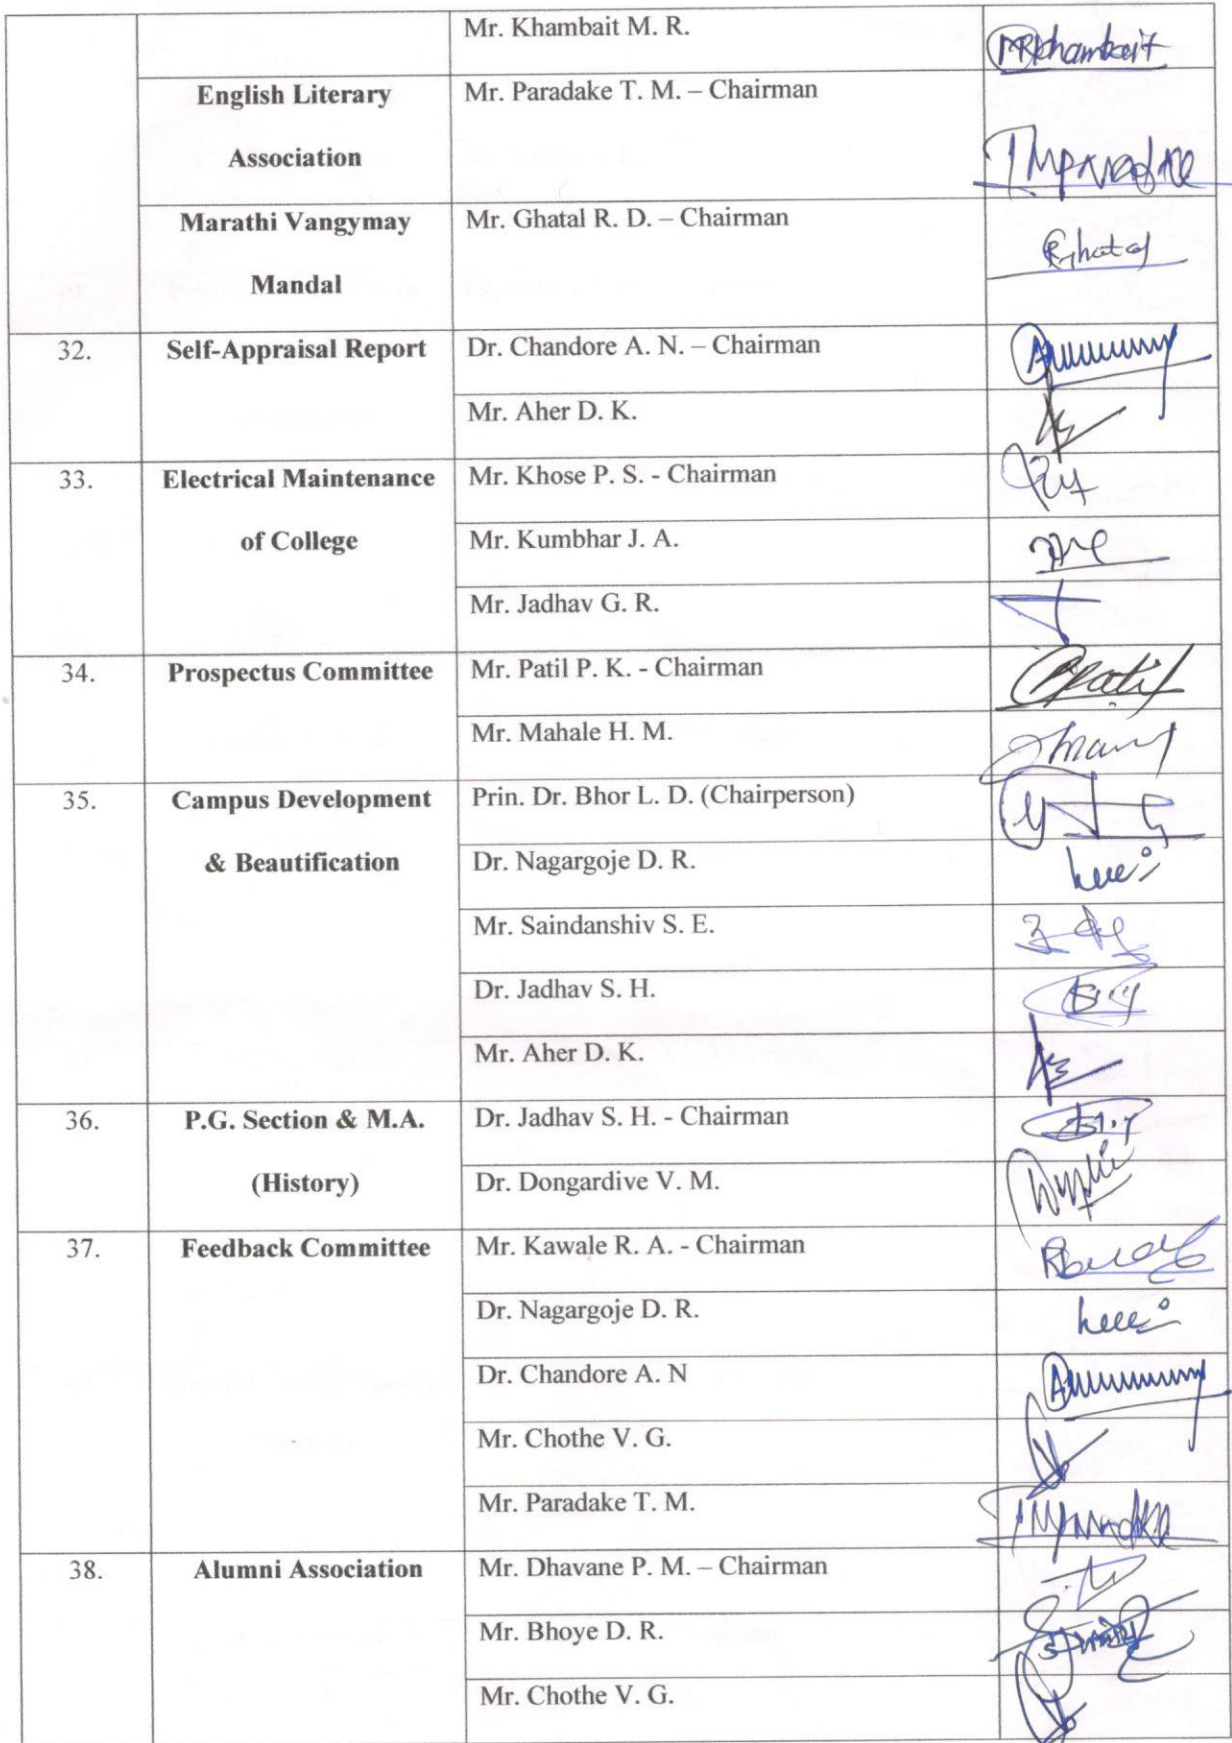 Mr. Khambait M. R. MRKhambait
English Literary Mr. Paradake T. M. – Chairman
Association TMParadke
Marathi Vangymay Mr. Ghatal R. D. – Chairman
Mandal
32. Self-Appraisal Report Dr. Chandore A. N. – Chairman
Mr. Aher D. K.
33. Electrical Maintenance Mr. Khose P. S. - Chairman
of College Mr. Kumbhar J. A.
Mr. Jadhav G. R.
34. Prospectus Committee Mr. Patil P. K. - Chairman
Mr. Mahale H. M.
35. Campus Development Prin. Dr. Bhor L. D. (Chairperson)
& Beautification Dr. Nagargoje D. R.
Mr. Saindanshiv S. E.
Dr. Jadhav S. H.
Mr. Aher D. K.
36. P.G. Section & M.A. Dr. Jadhav S. H. - Chairman
(History) Dr. Dongardive V. M.
37. Feedback Committee Mr. Kawale R. A. - Chairman
Dr. Nagargoje D. R.
Dr. Chandore A. N
Mr. Chothe V. G.
Mr. Paradake T. M.
38. Alumni Association Mr. Dhavane P. M. – Chairman
Mr. Bhoye D. R.
Mr. Chothe V. G.